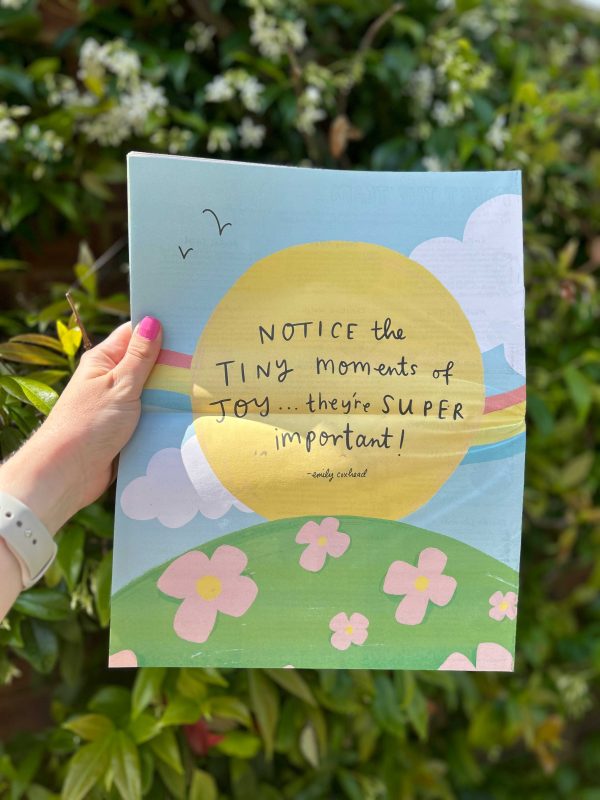 NOTICE the
TINY moments of
JOY... they're SUPER
important!
-emily coxhead